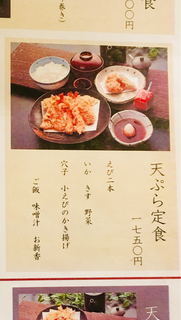 定食
〇〇円
巻き）
天ぷら定食
一七五〇円
えび二本
いか　きす　野菜
穴子　小えびのかき揚げ
ご飯　味噌汁　お新香
天